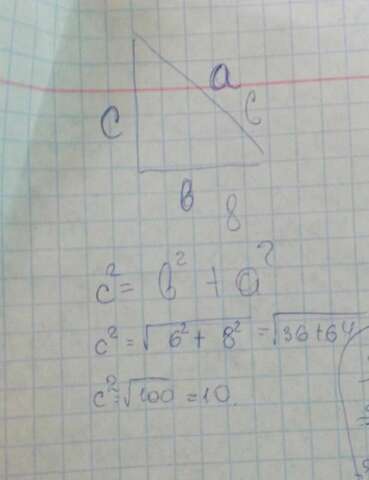 a
c
6
в
8
c² = в² + a²
c² = √6² + 8² = √36+64
c² = √100 = 10.